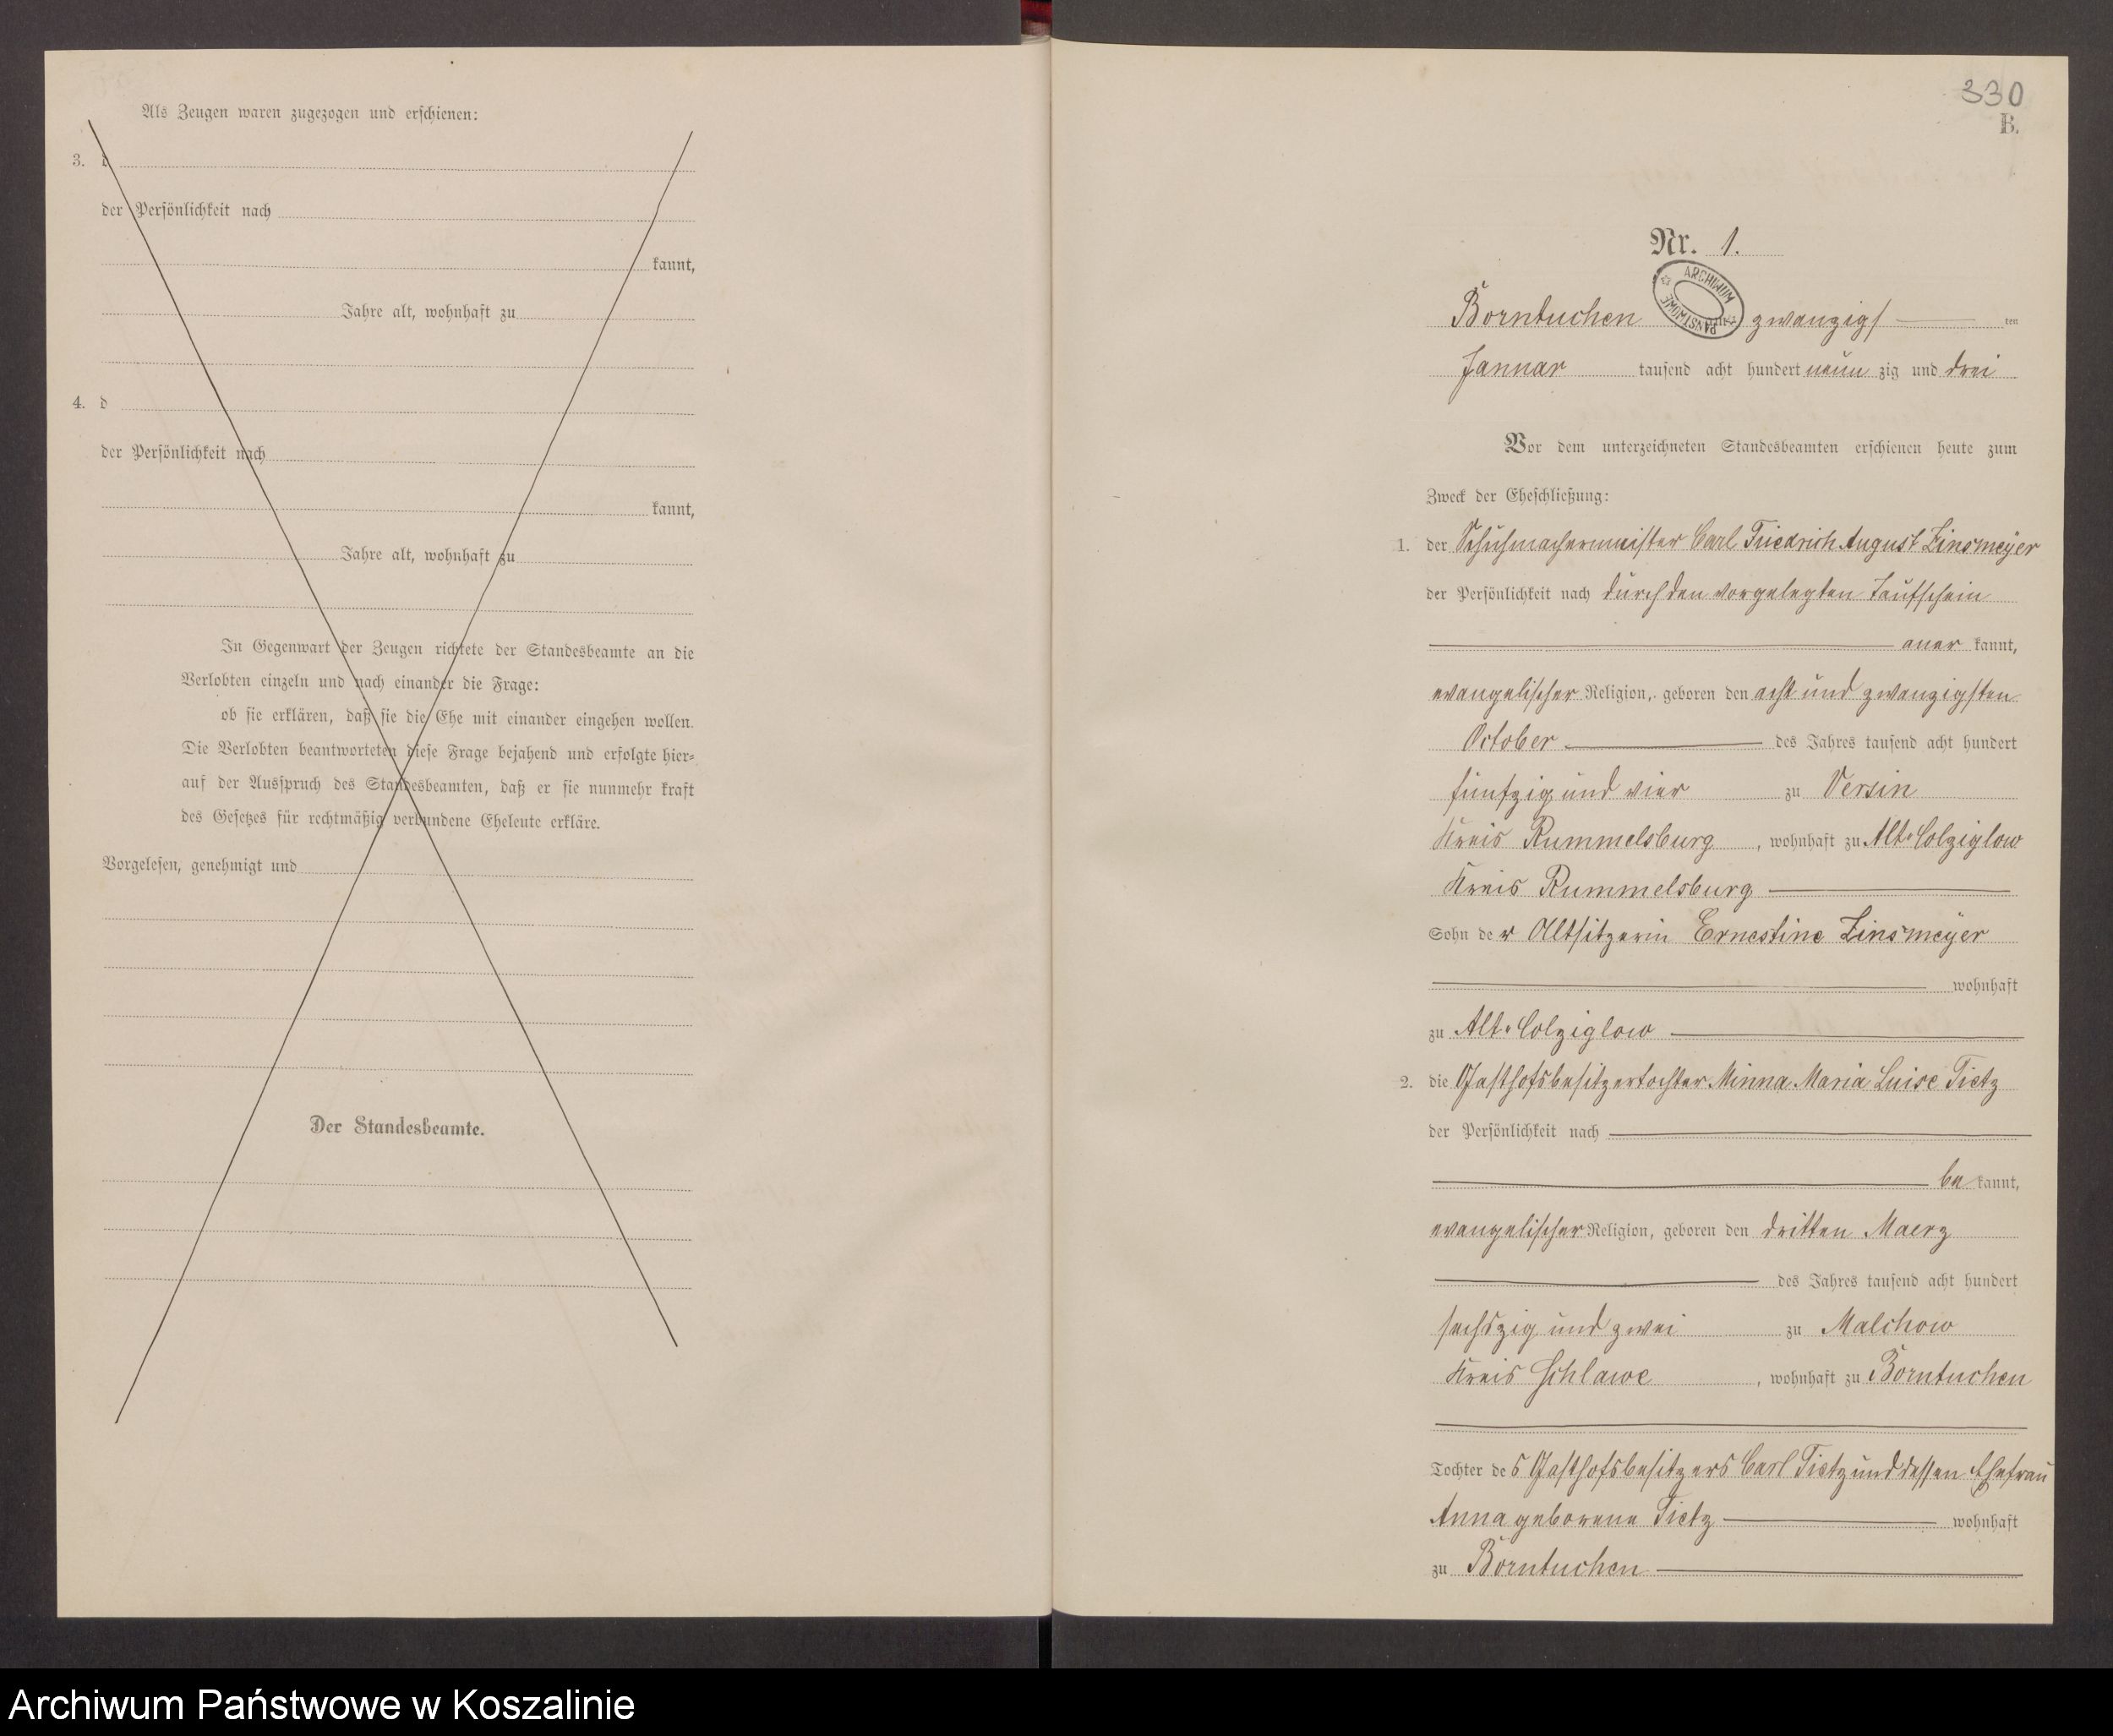 Als Zeugen waren zugezogen und erschienen:
3. d
der Persönlichkeit nach
kannt,
Jahre alt, wohnhaft zu
4. d
der Persönlichkeit nach
kannt,
Jahre alt, wohnhaft zu
In Gegenwart der Zeugen richtete der Standesbeamte an die
Verlobten einzeln und nach einander die Frage:
ob sie erklären, daß sie die Ehe mit einander eingehen wollen.
Die Verlobten beantworteten diese Frage bejahend und erfolgte hier-
auf der Ausspruch des Standesbeamten, daß er sie nunmehr kraft
des Gesetzes für rechtmäßig verbundene Eheleute erkläre.
Vorgelesen, genehmigt und
Der Standesbeamte.
330
B.
Nr. 1.
ARCHIWUM PAŃSTWOWE
Borntuchen zwanzigs ten
Januar tausend acht hundert neun zig und drei
Vor dem unterzeichneten Standesbeamten erschienen heute zum
Zweck der Eheschließung:
1. der Schuhmachermeister Carl Friedrich August Zinsmeyer
der Persönlichkeit nach durch den vorgelegten Taufschein
aner kannt,
evangelischer Religion, geboren den acht und zwanzigsten
October des Jahres tausend acht hundert
fünfzig und vier zu Versin
Kreis Rummelsburg, wohnhaft zu Alt-Colziglow
Kreis Rummelsburg
Sohn der Altsitzerin Ernestine Zinsmeyer
wohnhaft
zu Alt-Colziglow
2. die Gasthofsbesitzertochter Minna Maria Luise Tietz
der Persönlichkeit nach
be kannt,
evangelischer Religion, geboren den dritten Maerz
des Jahres tausend acht hundert
sechszig und zwei zu Malchow
Kreis Schlawe, wohnhaft zu Borntuchen
Tochter des Gasthofsbesitzers Carl Tietz und dessen Ehefrau
Anna geborene Tietz wohnhaft
zu Borntuchen
Archiwum Państwowe w Koszalinie